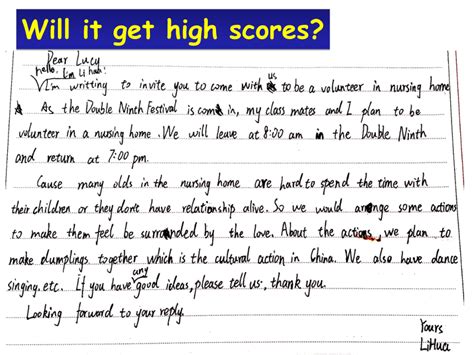 Will it get high scores?
Dear Lucy
hello. I'm Li hua!
I'm writting to invite you to come with us to be a volunteer in nursing home
As the Double Ninth Festival is comin, my class mates and I plan to be
volunteer in a nursing home. We will leave at 8:00 am in the Double Ninth
and return at 7:00 pm.
Cause many olds in the nursing home are hard to spend the time with
their children or they dont have relationship alive. So we would arrange some actions
to make them feel be surrounded by the love. About the actions, we plan to
make dumplings together which is the cultural action in China. We also have dance
singing. etc. If you have any good ideas, please tell us, thank you.
Looking forward to your reply.
Yours
LiHua